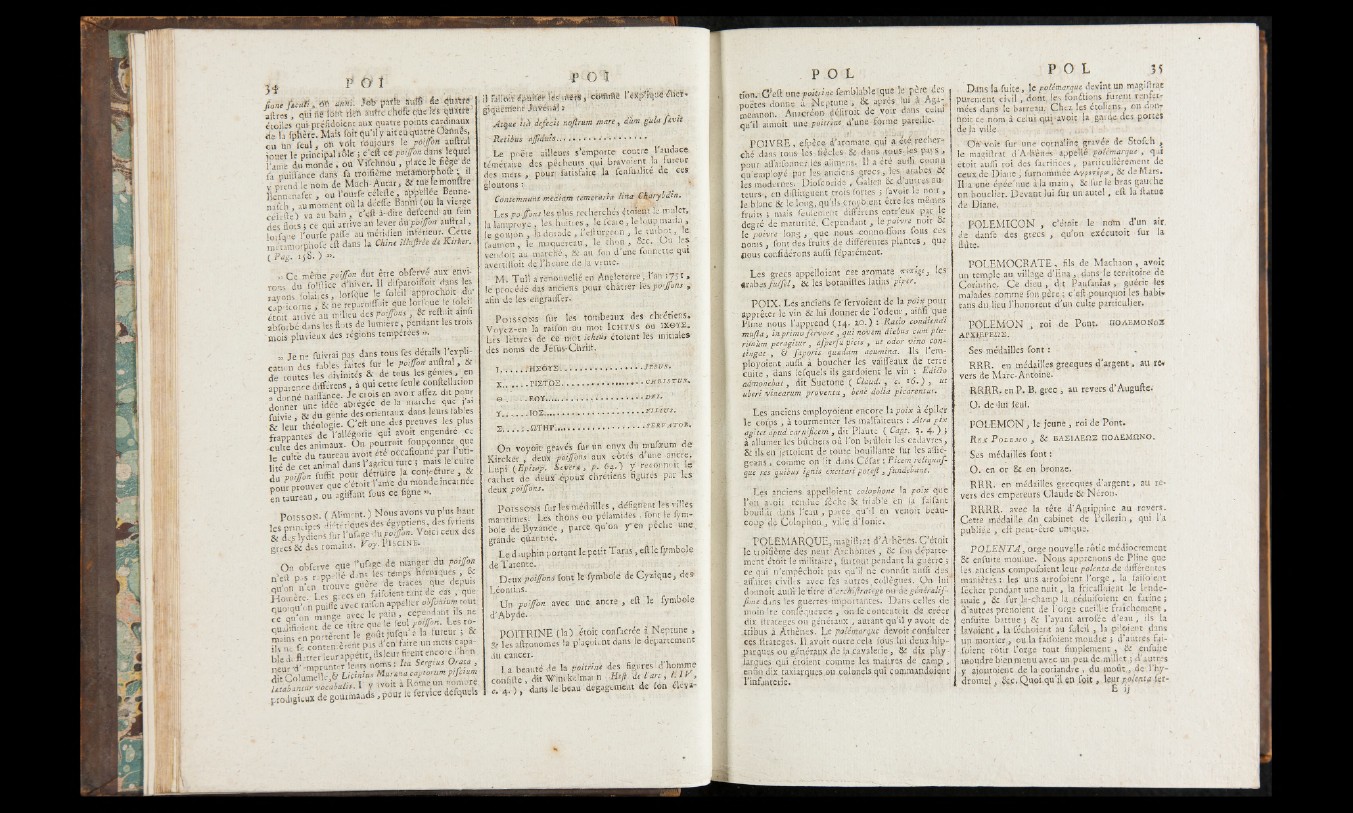 34 P O I
sione seculi, ou anni. Job parle aussi de quatre
astres, qui ne sont rien autre chose que les quatre
étoiles qui présidoient aux quatre points cardinaux
de la sphère. Mais soit qu'il y ait eu quatre Oannès,
ou un seul, on voit toujours le poisson austral
jouer le principal rôle ; c'est ce poisson dans lequel
l'ame du monde, ou Vischnou, place le siége de
sa puissance dans sa troisième métamorphose ; il
y prend le nom de Mach-Autar, & tue le monstre
nasch, au moment où la déesse Banni (ou la vierge
céleste) va au bain, c'est-à-dire descend au sein
des flots ; ce qui arrive au lever du poisson austral,
lorsque l'ourse passe au méridien inférieur. Cette
métamorphose est dans la Chine illustrée de Kirker.
( Pag. 158. ) ».
» Ce même poisson dut être observé aux envi-
rons du solstice d'hiver. Il disparoissoit dans les
rayons solaires, lorsque le soleil approchoit du
capricorne, & ne reparoissoit que lorsque le soleil
étoit arrivé au milieu des poissons, & restoit ainsi
absorbé dans les flots de lumière, pendant les trois
mois pluvieux des régions tempérées ».
» Je ne suivrai pas dans tous ses détails l'expli-
cation des fables faites sur le poisson austral, &
de toutes les divinités & de tous les génies, en
apparence différens, à qui cette seule constellation
a donné naissance. Je crois en avoir assez dit pour
donner une idée abrégée de la marche que j'ai
suivie, & du génie des orientaux dans leurs fables
& leur théologie. C'est une des preuves les plus
frappantes de l'allégorie qui avoit engendré ce
culte des animaux. On pourroit soupçonner que
le culte du taureau avoit été occasionné par l'uti-
lité de cet animal dans l'agriculture ; mais le culte
du poisson suffit pour détruire la conjecture, &
pour prouver que c'étoit l'ame du monde incarnée
en taureau, ou agissant sous ce signe ».
POISSON. ( Aliment. ) Nous avons vu plus haut
les principes diététiques des égyptiens, des syriens
& des lydiens sur l'usage du poisson. Voici ceux des
grecs & des romains. Voy. PISCINE.
On observe que l'usage de manger du poisson
n'est pas rappellé dans les temps héroïques, &
qu'on n'en trouve guère de traces que depuis
Homère. Les grecs en faisoient tant de cas, que
quoiqu'on puisse avec raison appeller obsonium tout
ce qu'on mange avec le pain, cependant ils ne
qualifioient de ce titre que le seul poisson. Les ro-
mains en portèrent le goût jusqu'à la fureur ; &
ils ne se contentèrent pas d'en faire un mets capa-
ble de flatter leur appétit, ils leur firent encore l'hon-
neur d'emprunter leurs noms : Ita Sergius Orata,
dit Columelle, & Licinius Murena captorum piscium
lætabantur vocabulis. Il y avoit à Rome un nombre
prodigieux de gourmands, pour le service desquels
P O I
il falloit épuiser les mers, comme l'explique éner-
giquement Juvenal :
Atque ità defecit nostrum mare, dùm gula sævit
Retibus assiduis....................
Le poëte ailleurs s'emporte contre l'audace
téméraire des pêcheurs qui bravoient la fureur
des mers, pour satisfaire la sensualité de ces
gloutons :
Contemnunt mediam temeraria lina Charybdin.
Les poissons les plus recherchés étoient le mulet,
la lamproye, les huitres, le scare, le loup marin,
le goujon, la dorade, l'esturgeon, le turbot, le
saumon, le maquereau, le thon, &c. On les
vendoit au marché, & au son d'une sonnette qui
avertissoit de l'heure de la vente.
M. Tull a renouvellé en Angleterre, l'an 1751,
le procédé des anciens pour châtrer les poissons,
afin de les engraisser.
POISSONS sur les tombeaux des chrétiens.
Voyez-en la raison au mot ICHTUS ou ΙΧΘΥΣ.
Les lettres de ce mot ichtus étoient les initiales
des noms de Jésus-Christ.
I......ΗΣΟΥΣ....................JESUS.
X......ΡΙΣΤΟΣ...................CHRISTUS.
Θ......ΕΟΥ......................DEI.
Y......ΙΟΣ......................FILIUS.
Σ......ΩΤΗΡ.....................SERVATOR.
On voyoit gravés sur un onyx du musæum de
Kircker, deux poissons aux côtés d'une ancre.
Lupi ( Epitap. Severæ, p. 64. ) y reconnoît le
cachet de deux époux chrétiens figurés par les
deux poissons.
POISSONS sur les médailles, désignent les villes
maritimes. Les thons ou pélamides, sont le sym-
bole de Byzance, parce qu'on y en pêche une
grande quantité.
Le dauphin portant le petit Taras, est le symbole
de Tarente.
Deux poissons sont le symbole de Cyzique, des
Léontins.
Un poisson avec une ancre, est le symbole
d'Abyde.
POITRINE (la) étoit consacrée à Neptune,
& les astronomes la plaçoient dans le département
du cancer.
La beauté de la poitrine des figures d'homme
consiste, dit Winckelman (Hist. de l'art, l. IV,
c. 4.), dans le beau dégagement de son éléva-
P O L
tion. C'est une poitrine semblable que le père des
poëtes donne à Neptune, & après lui à Aga-
memnon. Anacréon désiroit de voir dans celui
qu'il aimoit une poitrine d'une forme pareille.
POIVRE, espèce d'aromate, qui a été recher-
ché dans tous les siècles & dans tous les pays,
pour assaisonner les alimens. Il a été aussi connu
qu'employé par les anciens grecs, les arabes &
les modernes. Dioscoride, Galien & d'autres au-
teurs, en distinguent trois sortes ; savoir le noir,
le blanc & le long, qu'ils croyoient être les mêmes
fruits ; mais seulement différens entr'eux par le
degré de maturité. Cependant, le poivre noir &
le poivre long, que nous connoissons sous ces
noms, sont des fruits de différentes plantes, que
nous considérons aussi séparément.
Les grecs appelloient cet aromate πεπερι, les
arabes fulfel, & les botanistes latins piper.
POIX. Les anciens se servoient de la poix pour
apprêter le vin & lui donner de l'odeur, ainsi que
Pline nous l'apprend (14. 20.) : Ratio condiendi
musta, in primo fervore, qui novem diebus cum plu-
rimùm peragitur, aspersu picis, ut odor vino con-
tingat, & saporis quædam acumina. Ils l'em-
ployoient aussi à boucher les vaisseaux de terre
cuite, dans lesquels ils gardoient le vin : Edicto
admonebat, dit Suétone ( Claud., c. 16. ), ut
uberi vinearum proventu, benè dolia picarentur.
Les anciens employoient encore la poix à épiler
le corps, à tourmenter les malfaiteurs : Atra pix
agitet apud carnificem, dit Plaute ( Capt. 3. 4. ) ;
à allumer les bûchers où l'on brûloit les cadavres,
& ils en jettoient de toute bouillante sur les assié-
geans, comme on lit dans César : Picem reliquas-
que res quibus ignis excitari potest, fundebant.
Les anciens appelloient colophone la poix que
l'on avoit rendue sèche & friable en la faisant
bouillir dans l'eau, parce qu'il en venoit beau-
coup de Colophon, ville d'Ionie.
POLEMARQUE, magistrat d'Athènes. C'étoit
le troisième des neuf Archontes, & son départe-
ment étoit le militaire, surtout pendant la guerre ;
ce qui n'empêchoit pas qu'il ne connût aussi des
affaires civiles avec ses autres collègues. On lui
donnoit aussi le titre d'archistratege ou de généralis-
sime dans les guerres importantes. Dans celles de
moindre conséquence, on se contentoit de créer
dix strateges ou généraux, autant qu'il y avoit de
tribus à Athènes. Le polémarque devoit consulter
ces strateges. Il avoit outre cela sous lui deux hip-
parques ou généraux de la cavalerie, & dix phy-
larques qui étoient comme les maîtres de camp,
enfin dix taxiarques ou colonels qui commandoient
l'infanterie.
P O L 35
Dans la suite, le polémarque devint un magistrat
purement civil, dont les fonctions furent renfer-
mées dans le barreau. Chez les étoliens, on don-
noit ce nom à celui qui avoit la garde des portes
de la ville.
On voit sur une cornaline gravée de Stosch,
le magistrat d'Athènes appellé polémarque, qui
étoit aussi roi des sacrifices, particulièrement de
ceux de Diane, surnommée Αγροτερα, & de Mars.
Il a une épée nue à la main, & sur le bras gauche
un bouclier. Devant lui sur un autel, est la statue
de Diane.
POLEMICON, c'étoit le nom d'un air
de danse des grecs, qu'on exécutoit sur la
flûte.
POLEMOCRATE, fils de Machaon, avoit
un temple au village d'Eua, dans le territoire de
Corinthe. Ce dieu, dit Pausanias, guérit les
malades comme son père ; c'est pourquoi les habi-
tans du lieu l'honorent d'un culte particulier.
POLEMON, roi de Pont. ΠΟΛΕΜΩΝΟΣ
ΑΡΧΙΕΡΕΩΣ.
Ses médailles sont :
RRR. en médailles grecques d'argent, au re-
vers de Marc-Antoine.
RRRR. en P. B. grec, au revers d'Auguste.
O. de lui seul.
POLEMON, le jeune, roi de Pont.
REX POLEMO, & ΒΑΣΙΛΕΩΣ ΠΟΛΕΜΩΝΟ.
Ses médailles sont :
O. en or & en bronze.
RRR. en médailles grecques d'argent, au re-
vers des empereurs Claude & Néron.
RRRR. avec la tête d'Agrippine au revers.
Cette médaille du cabinet de Pellerin, qui l'a
publiée, est peut-être unique.
POLENTA, orge nouvelle rôtie médiocrement
& ensuite moulue. Nous apprenons de Pline que
les anciens composoient leur polenta de différentes
manières : les uns arrosoient l'orge, la laissoient
sécher pendant une nuit, la fricassoient le lende-
main, & sur le-champ la réduisoient en farine ;
d'autres prenoient de l'orge cueillie fraîchement,
ensuite battue ; & l'ayant arrosée d'eau, ils la
lavoient, la séchoient au soleil, la piloient dans
un mortier, ou la faisoient moudre ; d'autres fai-
soient rôtir l'orge tout simplement, & ensuite
moudre bien menu avec un peu de millet ; d'autres
y ajoutoient de la coriandre, du moût, de l'hy-
dromel, &c. Quoi qu'il en soit, leur polenta ser-
E ij